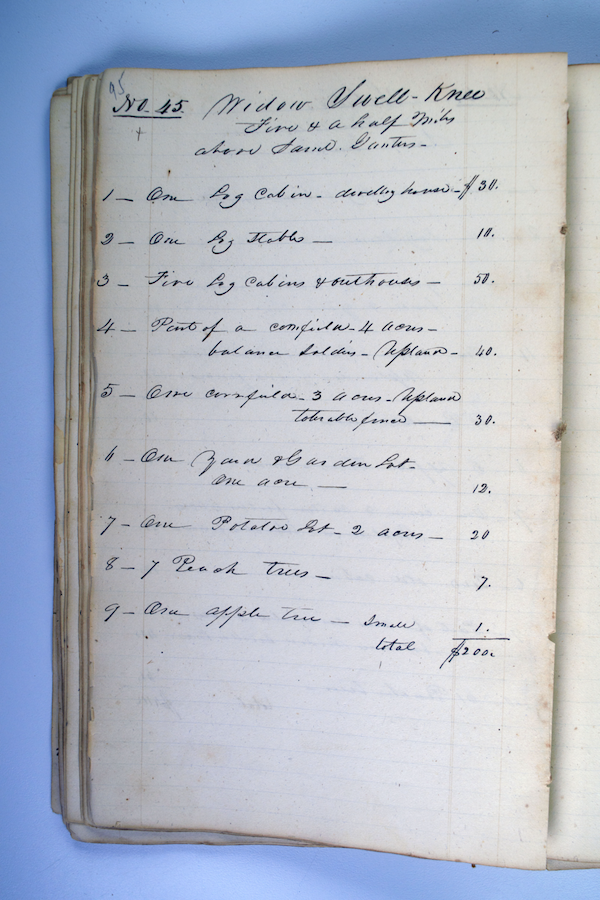 95
No. 45 Widow Swell-Knee
Five & a half Miles
above Saml. Gunters -
1 - One Log Cabin - dwelling house - $30.
2 - One Log Stable - 10.
3 - Five Log Cabins & outhouses - 50.
4 - Part of a cornfield - 4 acres -
balance Soldier - Upland - 40.
5 - One cornfield - 3 acres - Upland
tolerable fence - 30.
6 - One Yard & Garden Lot -
One acre - 12.
7 - One Potatoe Lot - 2 acres - 20
8 - 7 Peach trees - 7.
9 - One apple tree - Small 1.
total $200.